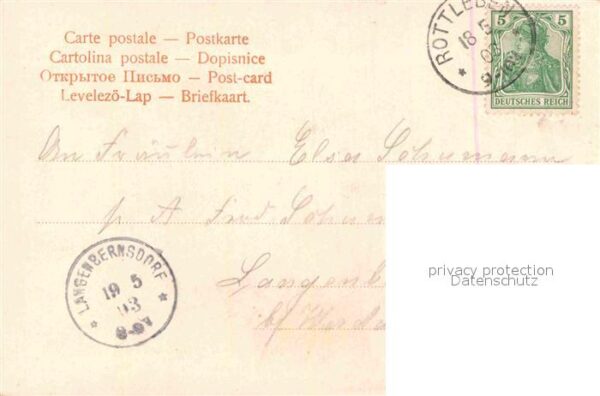 Carte postale — Postkarte
Cartolina postale — Dopisnice
Открытое Письмо — Post-card
Levelezö-Lap — Briefkaart.
ROTTLEBEN
18 5
5 5
DEUTSCHES REICH
An Fräulein Elsa Schumann
p. A
Langenb
b/ Werda
LANGENBERNSDORF
19 5
03
8-9V
privacy protection
Datenschutz